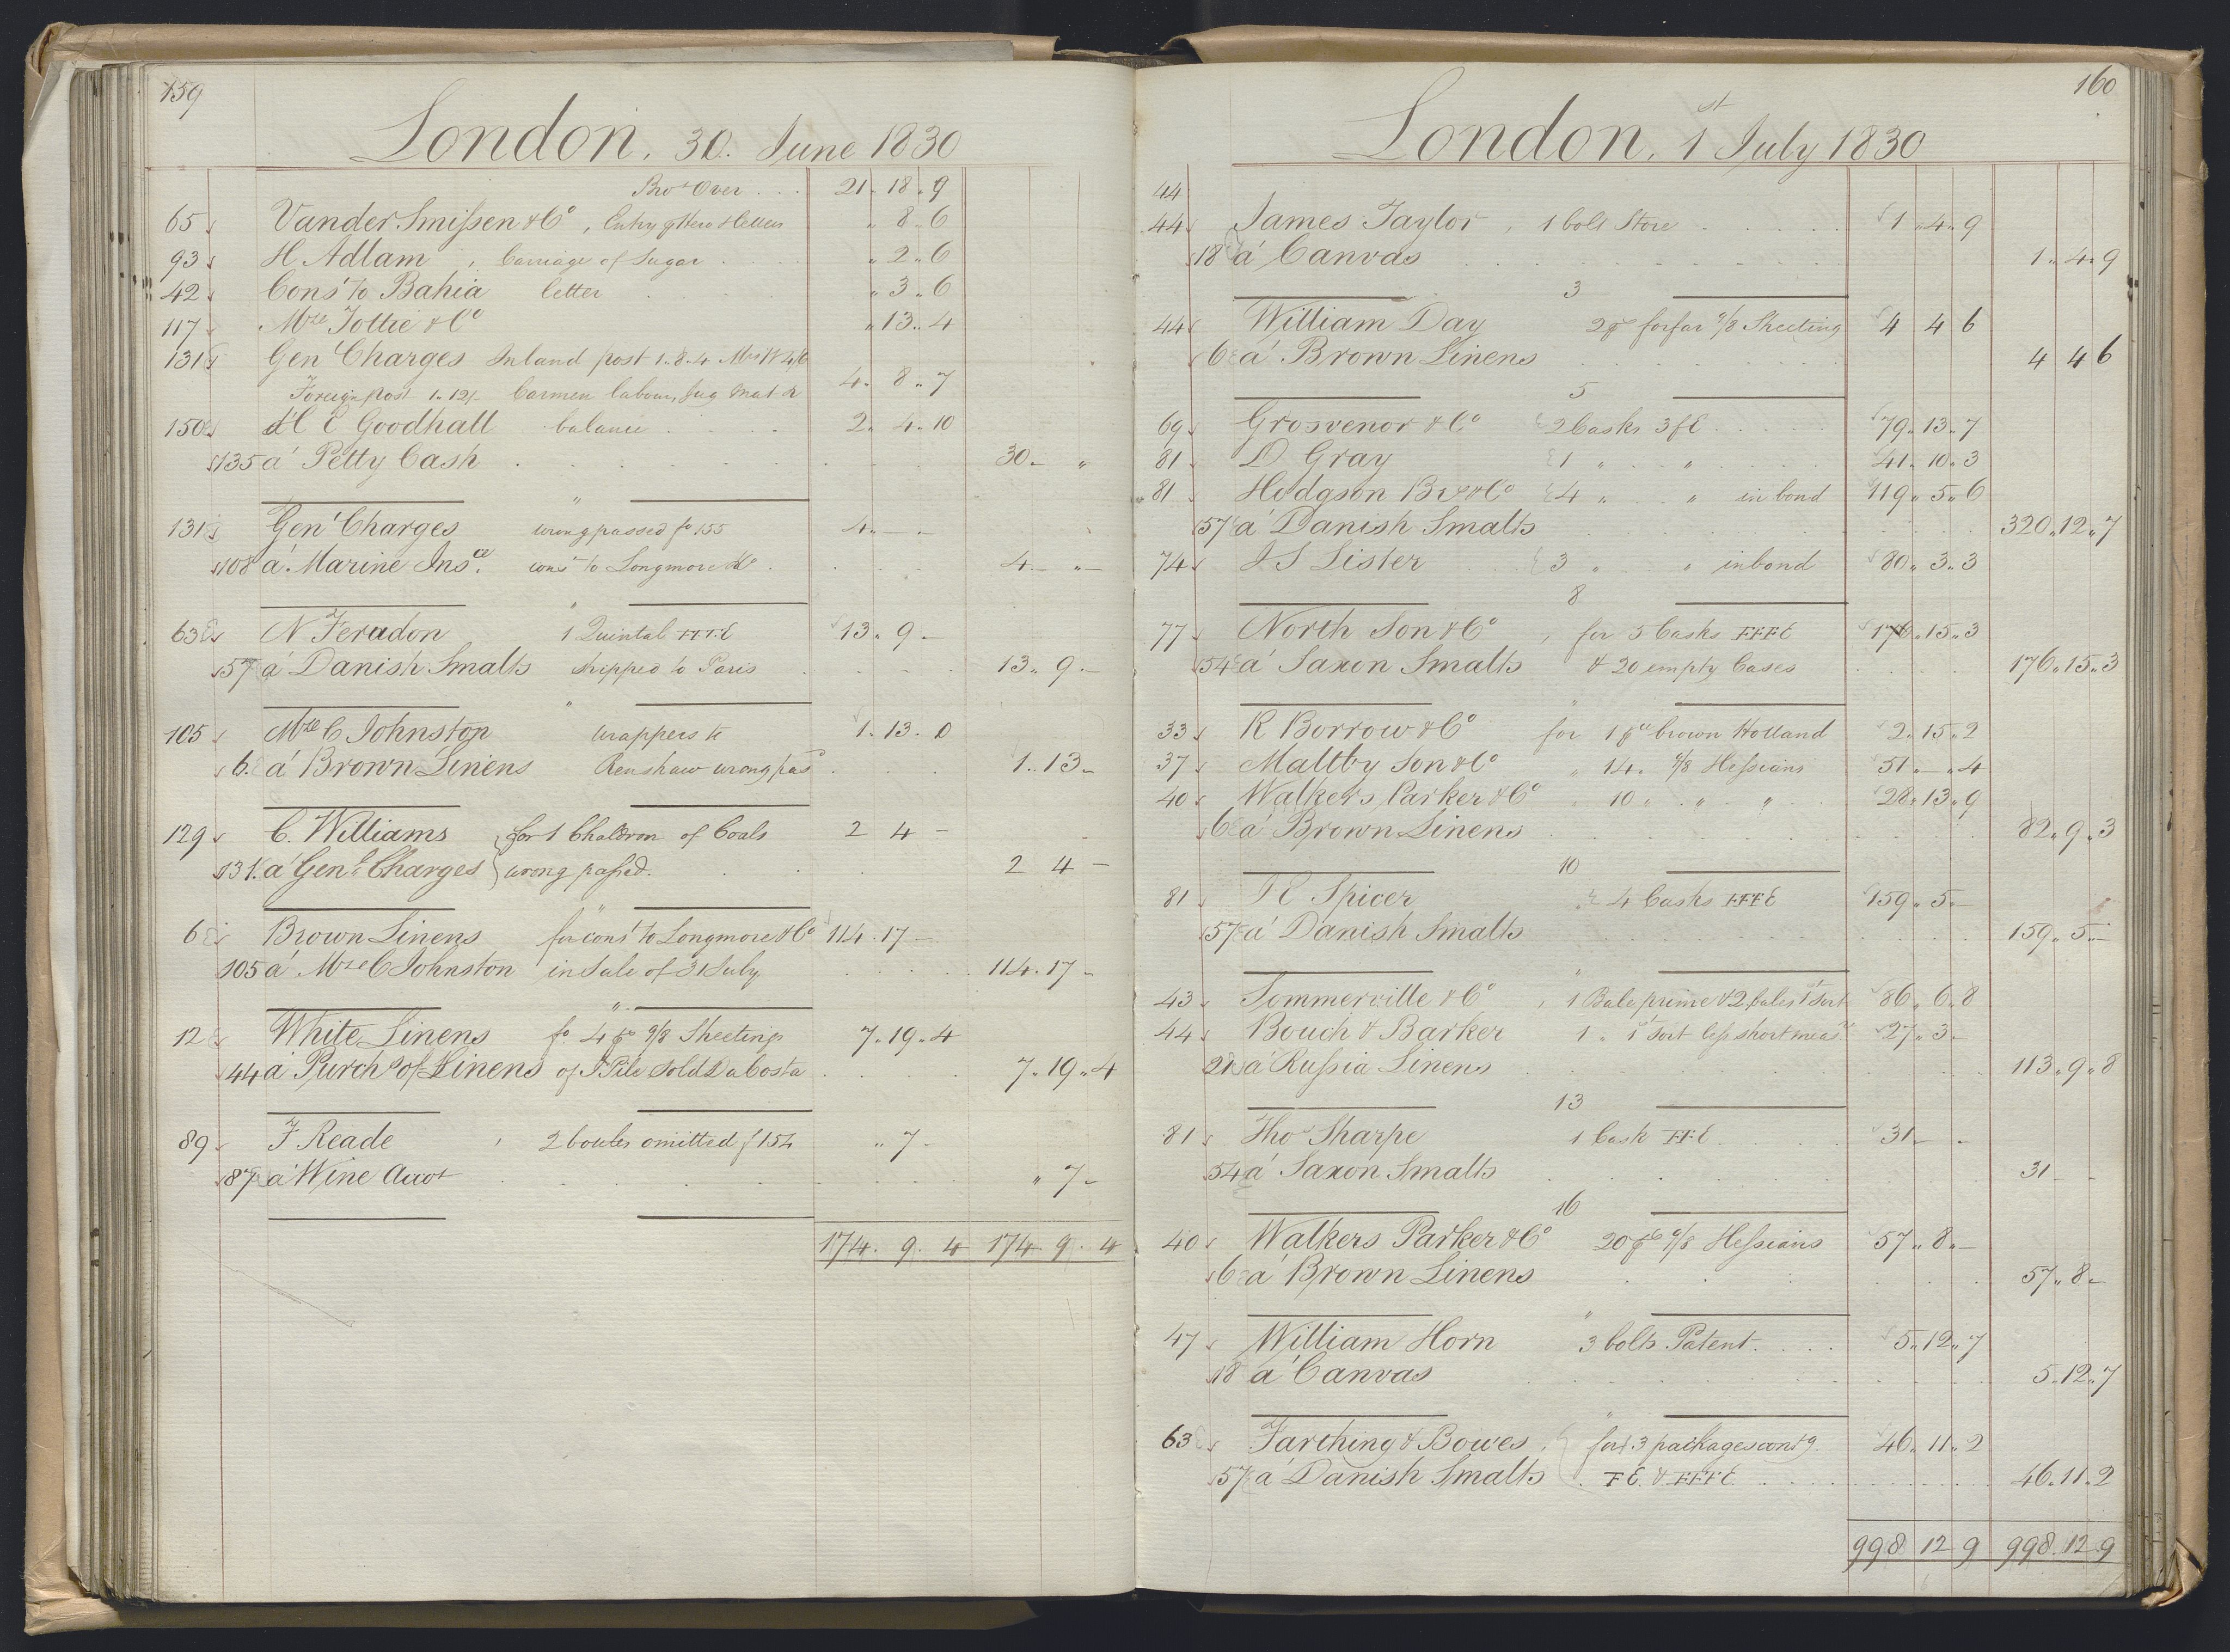 159
London, 30. June 1830
Bro.t Over . . . 21. 18. 9
65 Vander Smissen & Co, Entry of Hern & Letters " 8. 6
93 H Adlam, Carriage of Sugar . . " 2. 6
42 Cons.t to Bahia letter " 3. 6
117 Tottie & Co " 13. 4
131 Gen.l Charges Inland post 1. 8. 4
Foreign post 1. 12/- Carmen labour, 4. 8. 7
150 H C Goodhall balance . . . 2. 4. 10
135 á Petty Cash . . . 30 - "
"
131 Gen.l Charges wrong passed fo 155 4. - -
108 á Marine Ins.ce cons.t to Longmore &c. 4. - " -
"
63 N Feradon 1 Quintal FFFE 13. 9. -
57 á Danish Smalts shipped to Paris 13. 9. -
"
105 C Johnston wrappers to 1. 13. 0
6. á Brown Linens Renshaw wrong pass.d 1. 13 -
129 C. Williams for 1 Chaldron of Coals 2 4 -
131. á Gen.l Charges wrong passed. 2 4 -
"
6 Brown Linens for cons.t to Longmore & Co 114. 17 -
105 á C Johnston in Sale of 31 July 114. 17 -
"
12 White Linens fo 4 ps 9/8 Sheetings 7. 19. 4
44 á Purch.s of Linens of Sold DaCosta 7. 19. 4
89 F Reade, 2 bottles omitted f 154 " 7 -
87 á Wine Acco.t " 7 -
174. 9. 4 174. 9. 4
160
London, 1st July 1830
44
44 James Taylor, 1 bolt Store . . . 1. 4. 9
18 á Canvas 1. 4. 9
3
44 William Day 2 ps forfar 9/8 Sheeting 4 4 6
6 á Brown Linens 4 4 6
5
69 Grosvenor & Co 2 Casks 3 f E 79. 13. 7
81 D Gray 1 " " 41. 10. 3
81 Hodgson Bro & Co 4 " " in bond 119. 5. 6
57 á Danish Smalts 320. 12. 7
74 J S Lister 3 " " in bond 80. 3. 3
8
77 North Son & Co, for 5 Casks FFFE 176. 15. 3
54 á Saxon Smalts & 20 empty Cases 176. 15. 3
"
33 R Borrow & Co for 1 pce brown Holland 2. 15. 2
37 Maltby Son & Co " 14. 9/8 Hessians 51. - 4
40 Walkers Parker & Co " 10 " " " 28. 13. 9
6 á Brown Linens 82. 9. 3
10
81 R Spicer 4 Casks FFFE 159. 5. -
57 á Danish Smalts 159. 5. -
"
43 Sommerville & Co, 1 Bale prime & 2 bales 1st Sort 86. 6. 8
44 Bouch & Barker 1 " 1st Sort less short meas.re 27. 3 -
21 á Russia Linens 113. 9. 8
13
81 Tho.s Sharpe 1 Cask FFE 31 - -
54 á Saxon Smalts 31 - -
16
40 Walkers Parker & Co 20 ps 9/8 Hessians 57. 8. -
6 á Brown Linens 57. 8 -
"
47 William Horn 3 bolts Patent . . . 5. 12. 7
18 á Canvas 5. 12. 7
"
63 Farthing & Bowes, for 3 packages cont.g 46. 11. 2
57 á Danish Smalts FE. & FFFE 46. 11. 2
998 12 9 998. 12. 9